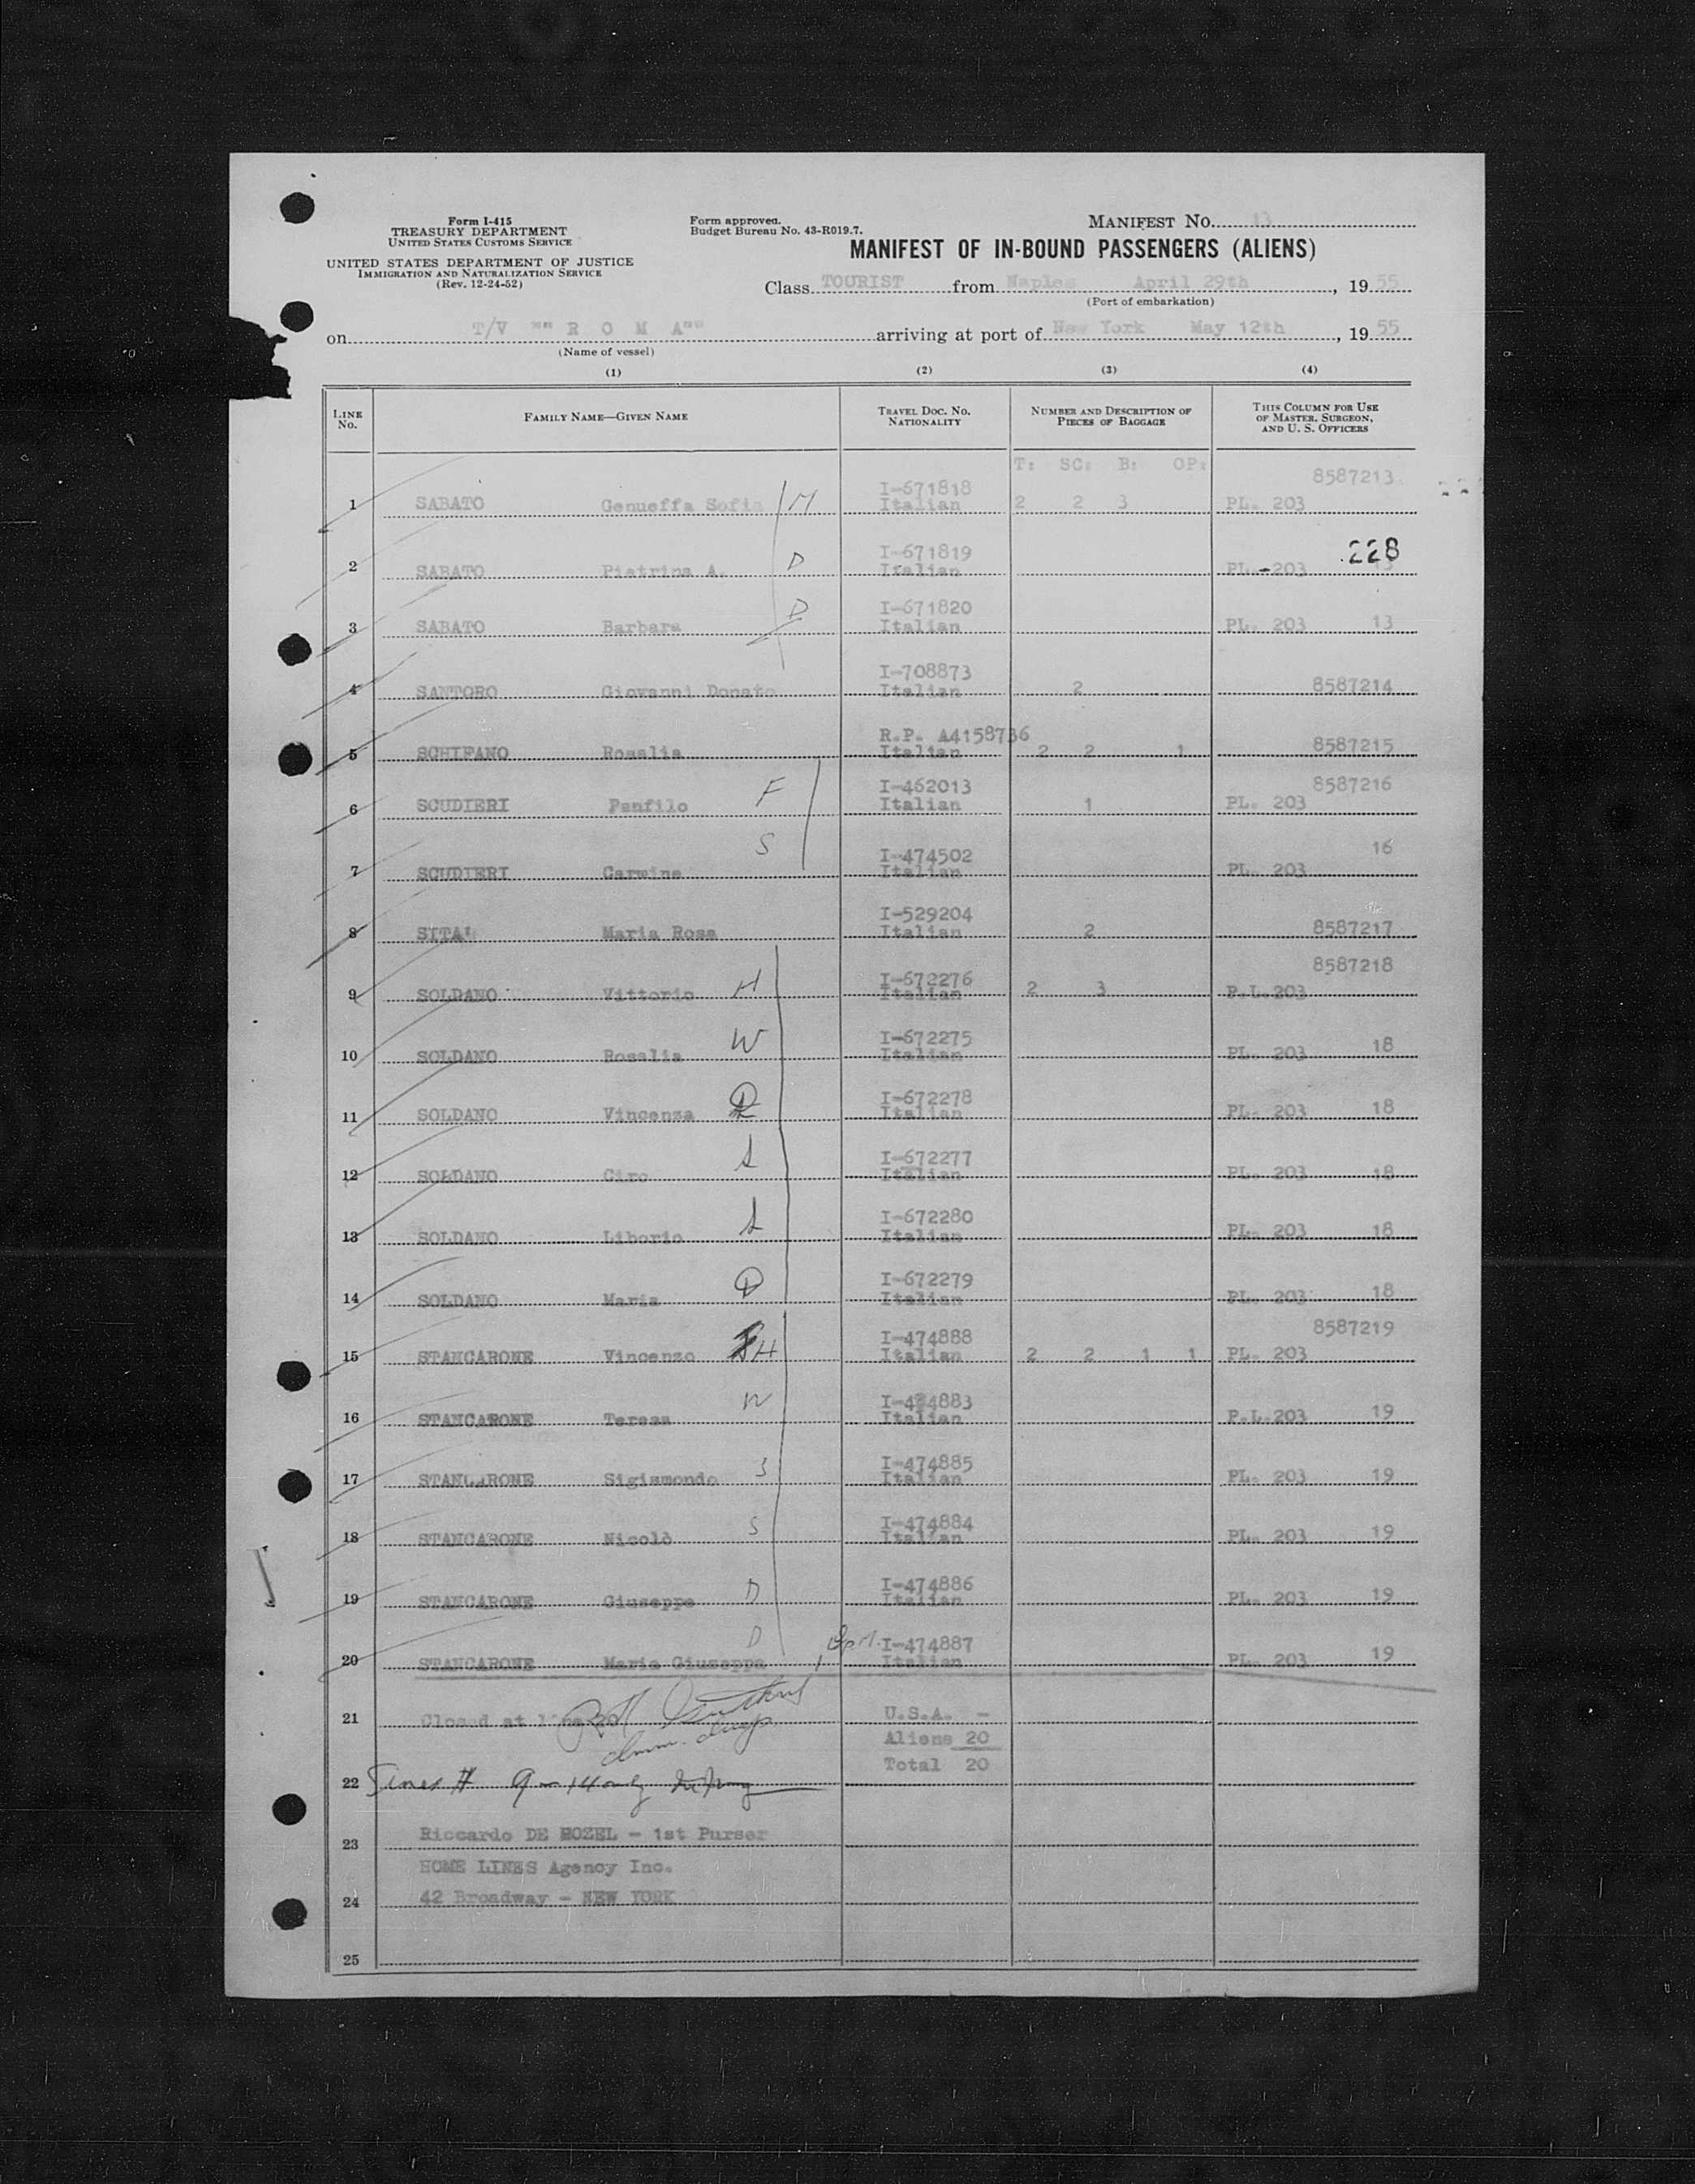 Form I-415
TREASURY DEPARTMENT
UNITED STATES CUSTOMS SERVICE
UNITED STATES DEPARTMENT OF JUSTICE
IMMIGRATION AND NATURALIZATION SERVICE
(Rev. 12-24-52)
Form approved.
Budget Bureau No. 43-R019.7.
MANIFEST No. 13
MANIFEST OF IN-BOUND PASSENGERS (ALIENS)
Class TOURIST from Naples April 29th, 1955
(Port of embarkation)
on T/V "" R O M A"" arriving at port of New York May 12th, 1955
(Name of vessel)
(1) (2) (3) (4)
LINE No. FAMILY NAME—GIVEN NAME TRAVEL DOC. No. NATIONALITY NUMBER AND DESCRIPTION OF PIECES OF BAGGAGE THIS COLUMN FOR USE OF MASTER, SURGEON, AND U. S. OFFICERS
T: SC: B: OP:
1 SABATO Genueffa Sofia M I-671818 Italian 2 2 3 PL. 203 8587213
2 SABATO Pietrina A. D I-671819 Italian PL.-203 13 228
3 SABATO Barbara D I-671820 Italian PL. 203 13
4 SANTORO Giovanni Donato I-708873 Italian 2 8587214
5 SCHIFANO Rosalia R.P. A4158736 Italian 2 2 1 8587215
6 SCUDIERI Panfilo F I-462013 Italian 1 PL. 203 8587216
7 SCUDIERI Carmine S I-474502 Italian PL. 203 16
8 SITA' Maria Rosa I-529204 Italian 2 8587217
9 SOLDANO Vittorio H I-672276 Italian 2 3 P.L.203 8587218
10 SOLDANO Rosalia W I-672275 Italian PL. 203 18
11 SOLDANO Vincenza D I-672278 Italian PL. 203 18
12 SOLDANO Ciro S I-672277 Italian PL. 203 18
13 SOLDANO Liborio S I-672280 Italian PL. 203 18
14 SOLDANO Maria D I-672279 Italian PL. 203 18
15 STANCARONE Vincenzo H I-474888 Italian 2 2 1 1 PL. 203 8587219
16 STANCARONE Teresa W I-474883 Italian P.L.203 19
17 STANCARONE Sigismondo S I-474885 Italian PL. 203 19
18 STANCARONE Nicolò S I-474884 Italian PL. 203 19
19 STANCARONE Giuseppe D I-474886 Italian PL. 203 19
20 STANCARONE Maria Giuseppa D I-474887 Italian PL. 203 19
21 Closed at line 20 U.S.A. -
Aliens 20
22 Total 20
23 Riccardo DE ROZEL - 1st Purser
HOME LINES Agency Inc.
24 42 Broadway - NEW YORK
25